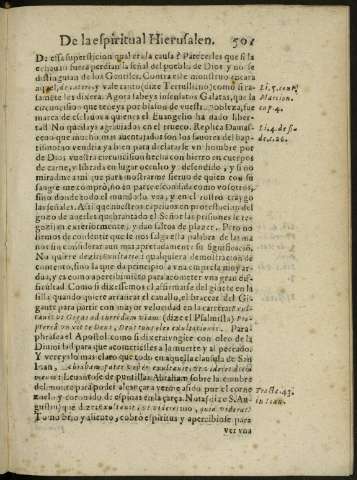 De la espiritual Hierusalen. 501
De essa supersticion qual era la causa? Parecerles que si la
echauan fuera perdian la señal del pueblo de Dios y no se
distinguian de los Gentiles. Contra este monstruo encara
aquel, y vale tanto (dize Tertulliano) como si ra-
samente les dixera: Agora sabeys insensatos Galatas, que la
circuncision que teneys por blason de vuestra nobleza, fue
marca de esclauos a quienes el Euangelio ha dado liber-
tad. No quedays agrauiados en el trueco. Replica Damas-
ceno que mucho mas auentajados son los fauores del bap-
tismo no vendria ya bien para declararse vn hombre por
de Dios vuestra circuncision hecha con hierro en cuerpos
de carne, y librada en lugar oculto y defendido, y si no
miradme a mi que para mostrarme sieruo de quien con su
sangre me compró, no en parte escondida como vosotros,
sino donde todo el mundo la vea, y en el rostro traygo
las señales. Assi que nuestros captiuos en protestacion del
gozo de auerles quebrantado el Señor las prisiones se re-
gozijan exteriormente, y dan saltos de plazer. Pero no
siremos de consentir que se nos salga esta palabra de las ma
nos sin considerar aun mas apretadamente su significació.
No quiere dezir qualquiera demostracion de
contento, sino la que da principio a vna empresa muy ar-
dua, y es como apercibimiento para acometer vna gran dif-
ficultad. Como si dixessemos el afirmarse del ginete en la
silla quando quiere arriscar el cauallo, el bracear del Gi-
gante para partir con mayor velocidad en la carrera:
vt Gigas ad currendam viam (dize el Psalmista)
Para-
phrasea el Apostol como si dixera vngiote con oleo de la
Diuinidad para que acometiesses a la muerte y al peccado.
Y vereyslo mas claro que todo en aquella clausula de San
Iuan,
Leuantose de puntillas Abraham sobre la cumbre
del monte para poder alcançar a verme asido por el corne
zuelo y coronado de espinas en la çarça. Notase dize S. Au-
gustin, que dize:
Tomo brio y aliento, cobró espiritus y apercibiose para
ver vna
Li. 5. cont.
Marcion.
cap. 4.
Li. 4. de fi-
de c. 26.
Tract. 43.
in Ioan.